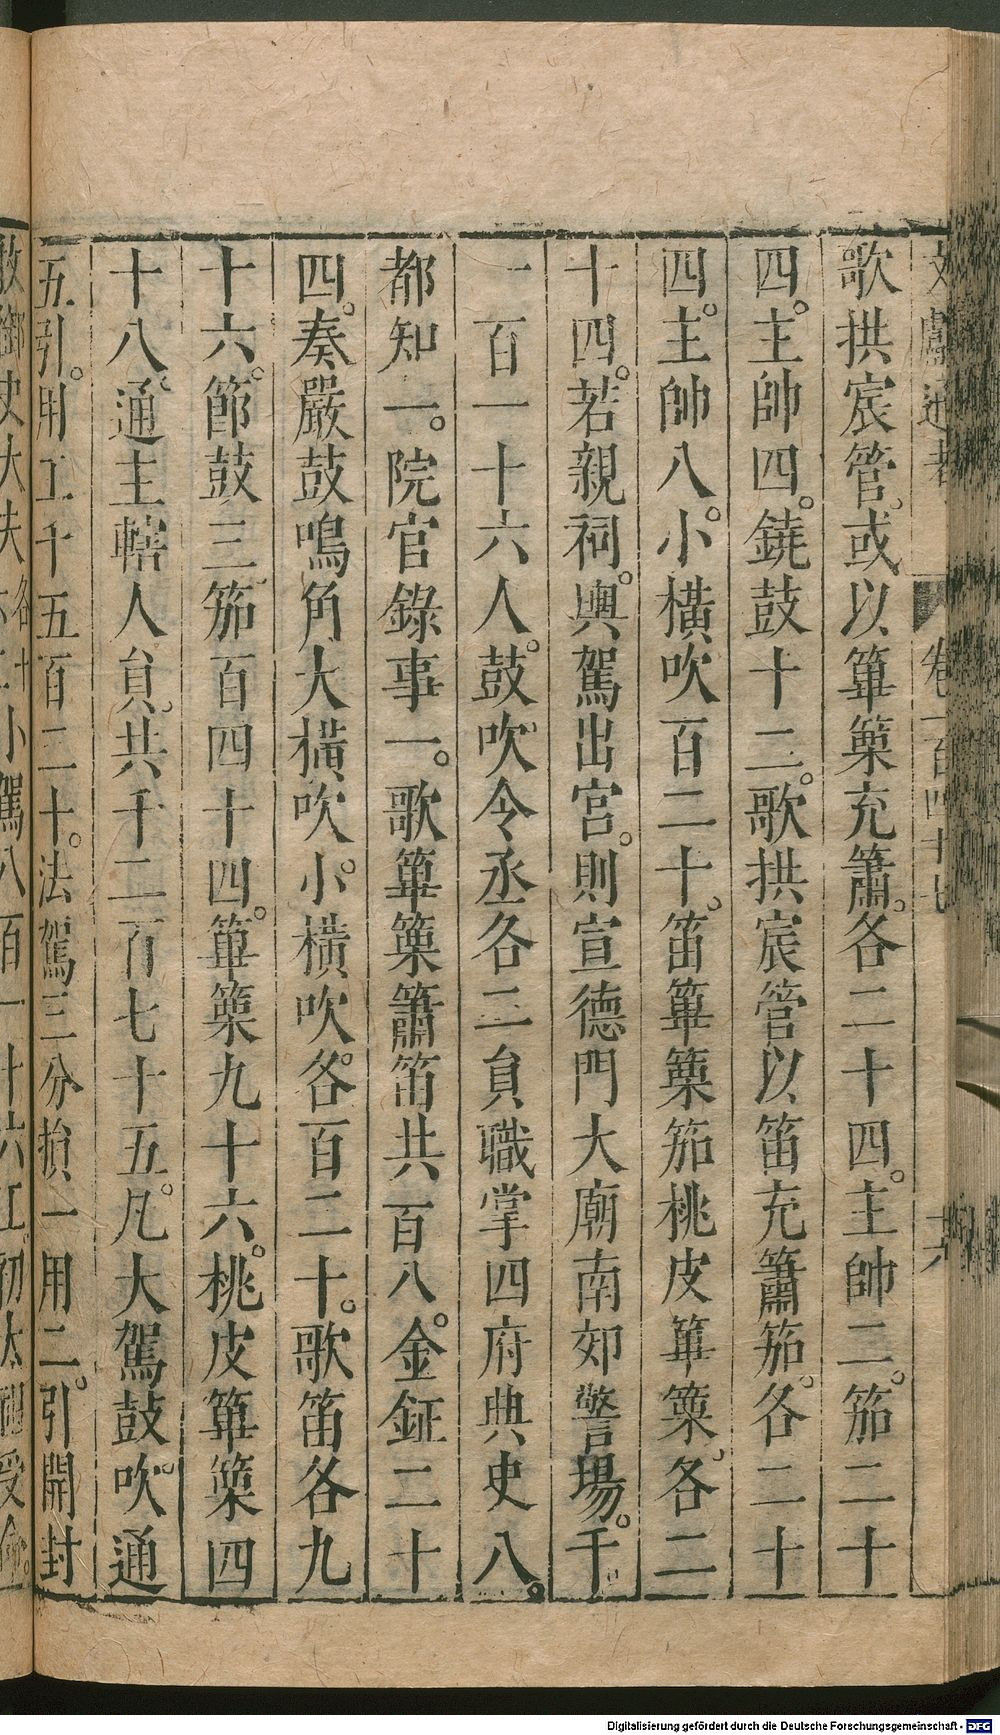 文獻通考 卷一百四十七 十六
歌拱宸管。或以篳篥充簫。各二十四。主帥二。笳二十
四。主帥四。鐃鼓十二。歌拱宸管以笛充簫笳。各二十
四。主帥八。小橫吹百二十。笛篳篥笳桃皮篳篥。各二
十四。若親祠。輿駕出宮。則宣德門大廟南郊警場。千
一百一十六人。鼓吹令丞各二員職掌四府典史八。
都知一。院官錄事一。歌篳篥簫笛共一百八。金鉦二十
四。奏嚴鼓鳴角大橫吹小。橫吹各百二十。歌笛各九
十六。節鼓三。笳百四十四。篳篥九十六。桃皮篳篥四
十八。通主轄人員。共千二百七十五。凡大駕鼓吹。通
五引。用工千五百二十。法駕三分損一用二。引開封